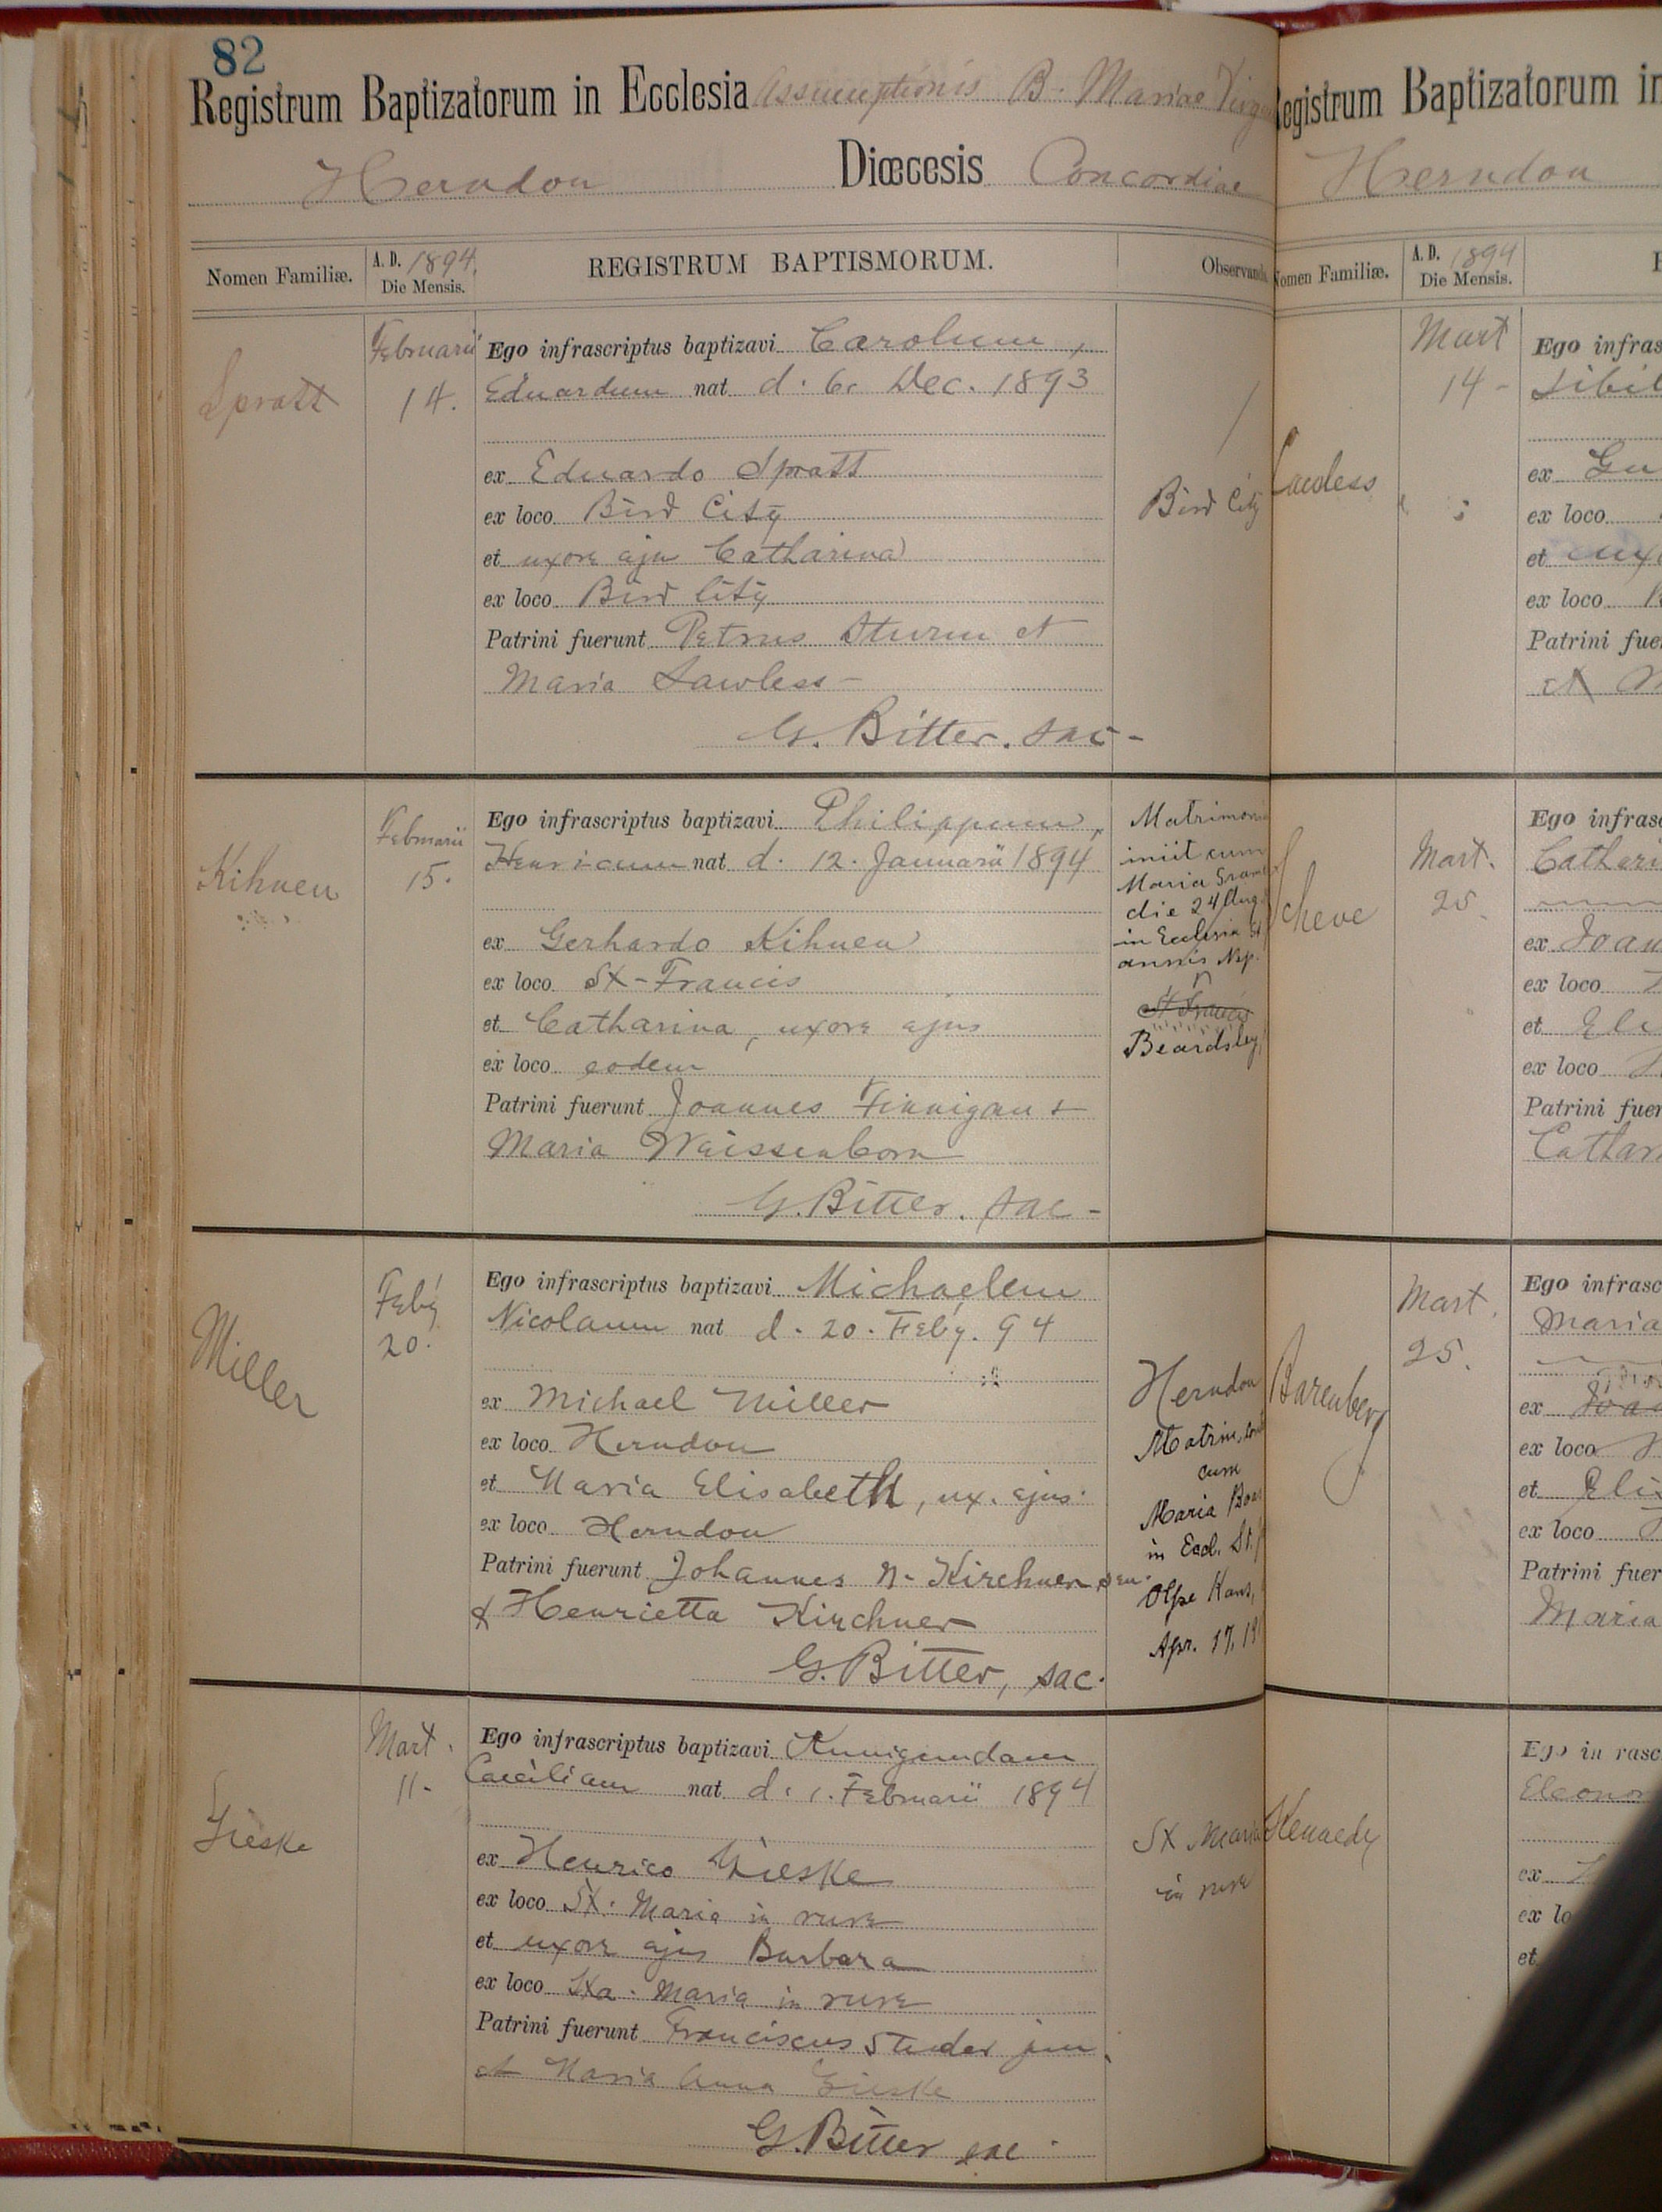 82
Registrum Baptizatorum in Ecclesia Assumptionis B. Mariae
Herndon Diœcesis Concordiae
Nomen Familiæ. A. D. 1894. Die Mensis. REGISTRUM BAPTISMORUM.
Spratt
Februarii
14.
Ego infrascriptus baptizavi Carolum,
Eduardum nat d. 6. Dec. 1893
ex Eduardo Spratt
ex loco Bird City
et uxore eju Catharina
ex loco Bird City
Patrini fuerunt Petrus Sturm et
Maria Lawless -
G. Bitter. sac -
Bird City
Kihnen
Februarii
15.
Ego infrascriptus baptizavi Philippum,
Henricum nat d. 12. Januarii 1894
ex Gerhardo Kihnen
ex loco St - Francis
et Catharina, uxore ejus
ex loco eodem
Patrini fuerunt Joannes Finnigan +
Maria Weissenborn
G. Bitter. sac -
iniit cum
Maria
die 24 Aug
in Ecclesia
St Francis
Beardsley
Miller
Feby
20.
Ego infrascriptus baptizavi Michaelem
Nicolaum nat d. 20. Feby. 94
ex Michael Miller
ex loco Herndon
et Maria Elisabeth, ux. ejus.
ex loco Herndon
Patrini fuerunt Johannes N. Kirchner sen.
& Henrietta Kirchner
G. Bitter, sac.
Herndon
Matrim.
cum
Maria
in Eccl. St.
Olpe Kans.
Apr. 17,
Gieske
Mart.
11 -
Ego infrascriptus baptizavi Kunigundam
Caeciliam nat d. 1. Februarii 1894
ex Henrico Gieske
ex loco St. Maria in rure
et uxore ejus Barbara
ex loco Sta. Maria in rure
Patrini fuerunt Franciscus Studer jun.
et Maria Anna Gieske
G. Bitter sac.
St Maria
in rure
Registrum Baptizatorum in
Herndon
Nomen Familiæ. A. D. 1894 Die Mensis.
Lawless
Mart
14 -
Ego
ex
ex loco
et
ex loco
Patrini
et
Scheve
Mart.
25.
Ego
ex
ex loco
et
ex loco
Patrini
Barenberg
Mart.
25.
Ego
Maria
ex
ex loco
et
ex loco
Patrini
Maria
Kennedy
Ego
ex
et